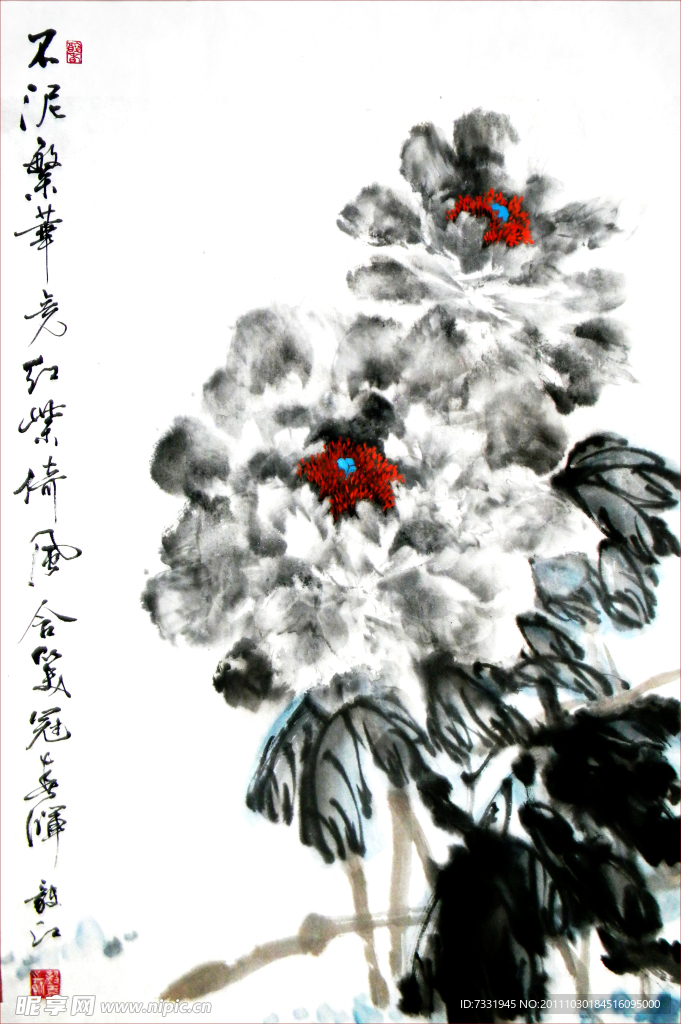 不泥繁華竞红紫倚风含笑冠春暉
毅江
昵享网 www.nipic.cn
ID:7331945 NO:20111030184516095000